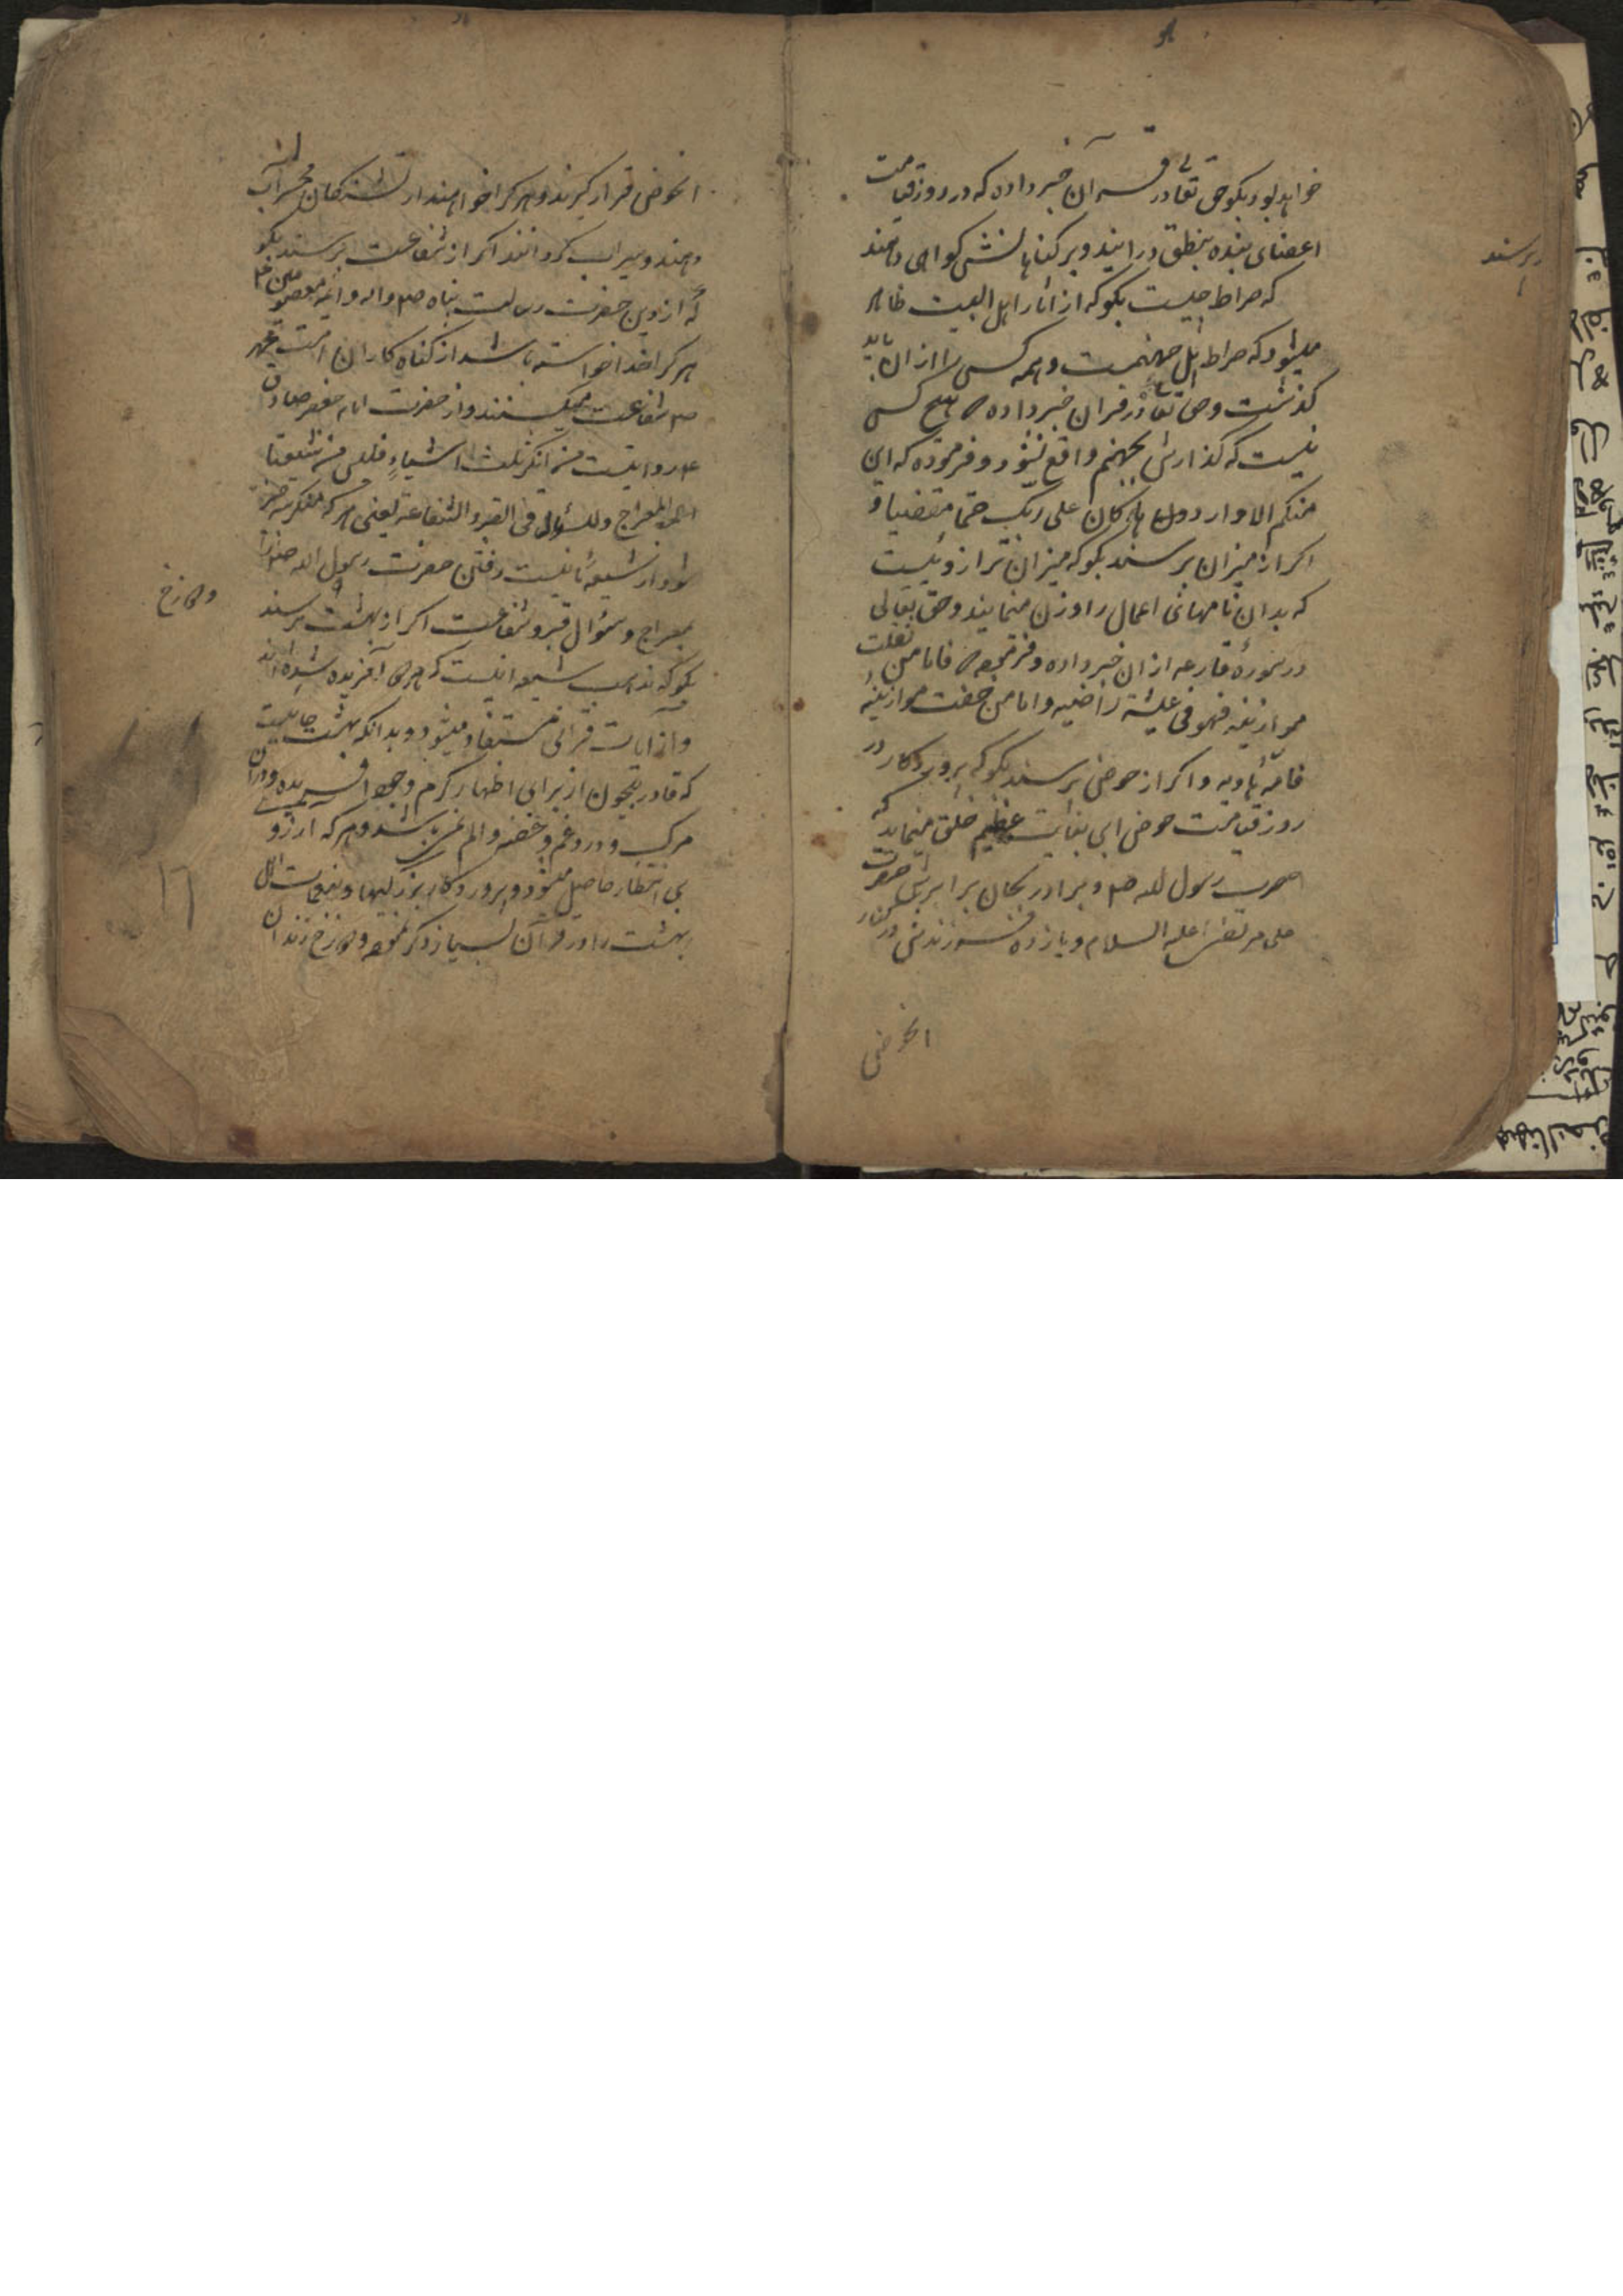 خواهد بود بگو حق تعالی در قرآن خبر داده که در روز قیامت
اعضای بنده بنطق درایند و بر کناهانش کواهی دهند
برسند
که صراط چیست بگو که از اثار اهل البیت ظاهر
میشود که صراط پل جهنمست و همه کس را از ان باید
کذشت و حق تعالی در قران خبر داده که هیچ کس
نیست که کذارش بجهنم واقع نشود و فرموده که ان
منکم الا واردها کان علی ربک حتما مقضیا و
اکر از میزان برسند بگو که میزان ترازوئیست
که بدان نامهای اعمال را وزن مینمایند و حق تعالی
در سورهٔ قارعه از ان خبر داده و فرموده که فاما من ثقلت
موازینه فهو فی عیشة راضیه و اما من خفت موازینه
فامه هاویه و اکر از حوض برسند بگو که پروردکار در
روز قیامت حوض ابی بغایت عظیم خلق مینماید که
حضرت رسول الله صم و برادر بجان برابرش حضرت
علی مرتضی علیه السلام و یازده فرزندش در کنار
انحوض
انحوض قرار کیرند و هر کرا خواهند از تشنکان محشر آب
دهند و سیراب کردانند اکر از شفاعت برسند بگو
که از دین حضرت رسالت پناه صم و اله و ائمه معصومین ع
هر کرا خدا خواسته باشد از کناه کاران امت
صم شفاعت میکنند و از حضرت امام جعفر صادق
ع روایتست من انکر ثلث اشیاء فلیس من شیعتنا
المعراج و السؤال فی القبر و الشفاعة یعنی هر که منکر سه چیز
شود از شیعه ما نیست رفتن حضرت رسول الله
بمعراج و سؤال قبر و شفاعت اکر از بهشت برسند
و دوزخ
بگو که مذهب شیعه انیست که هر دو آفریده شده اند
و از آیات قرانی مستفاد میشود و بدانکه بهشت جائیست
که قادر بیچون از برای اظهار کرم وجود افریده و در ان
مرک و درد و غم و غصه و الم نمی باشد و هر که آرزو
بی انتظار حاصل میشود و پروردکار بزرکیها و نعمات
بهشت را در قرآن بسیار ذکر نموده و دوزخ زندان